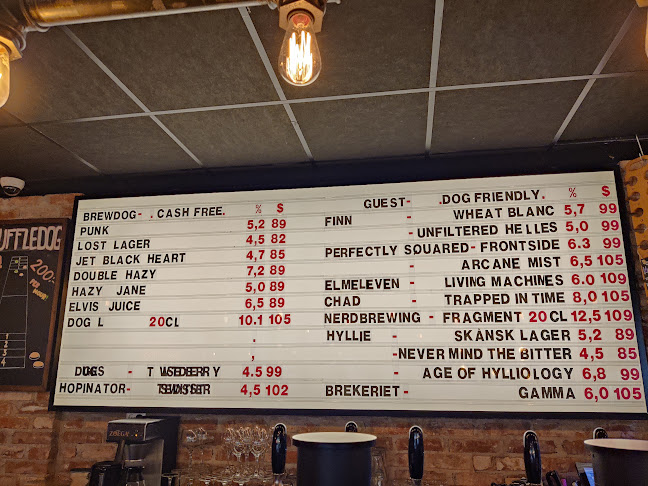 BREWDOG- . CASH FREE. % $
PUNK 5,2 89
LOST LAGER 4,5 82
JET BLACK HEART 4,7 85
DOUBLE HAZY 7,2 89
HAZY JANE 5,0 89
ELVIS JUICE 6,5 89
DOG L 20CL 10.1 105
4.5 99
HOPINATOR- 4,5 102
GUEST- .DOG FRIENDLY. % $
FINN - WHEAT BLANC 5,7 99
-UNFILTERED HELLES 5,0 99
PERFECTLY SQUARED- FRONTSIDE 6.3 99
- ARCANE MIST 6,5 105
ELMELEVEN - LIVING MACHINES 6.0 109
CHAD - TRAPPED IN TIME 8,0 105
NERDBREWING - FRAGMENT 20 CL 12,5 109
HYLLIE - SKÅNSK LAGER 5,2 89
-NEVER MIND THE BITTER 4,5 85
- AGE OF HYLLIOLOGY 6,8 99
BREKERIET- GAMMA 6,0 105
UFFLEDOG
200:-
1
2
3
4